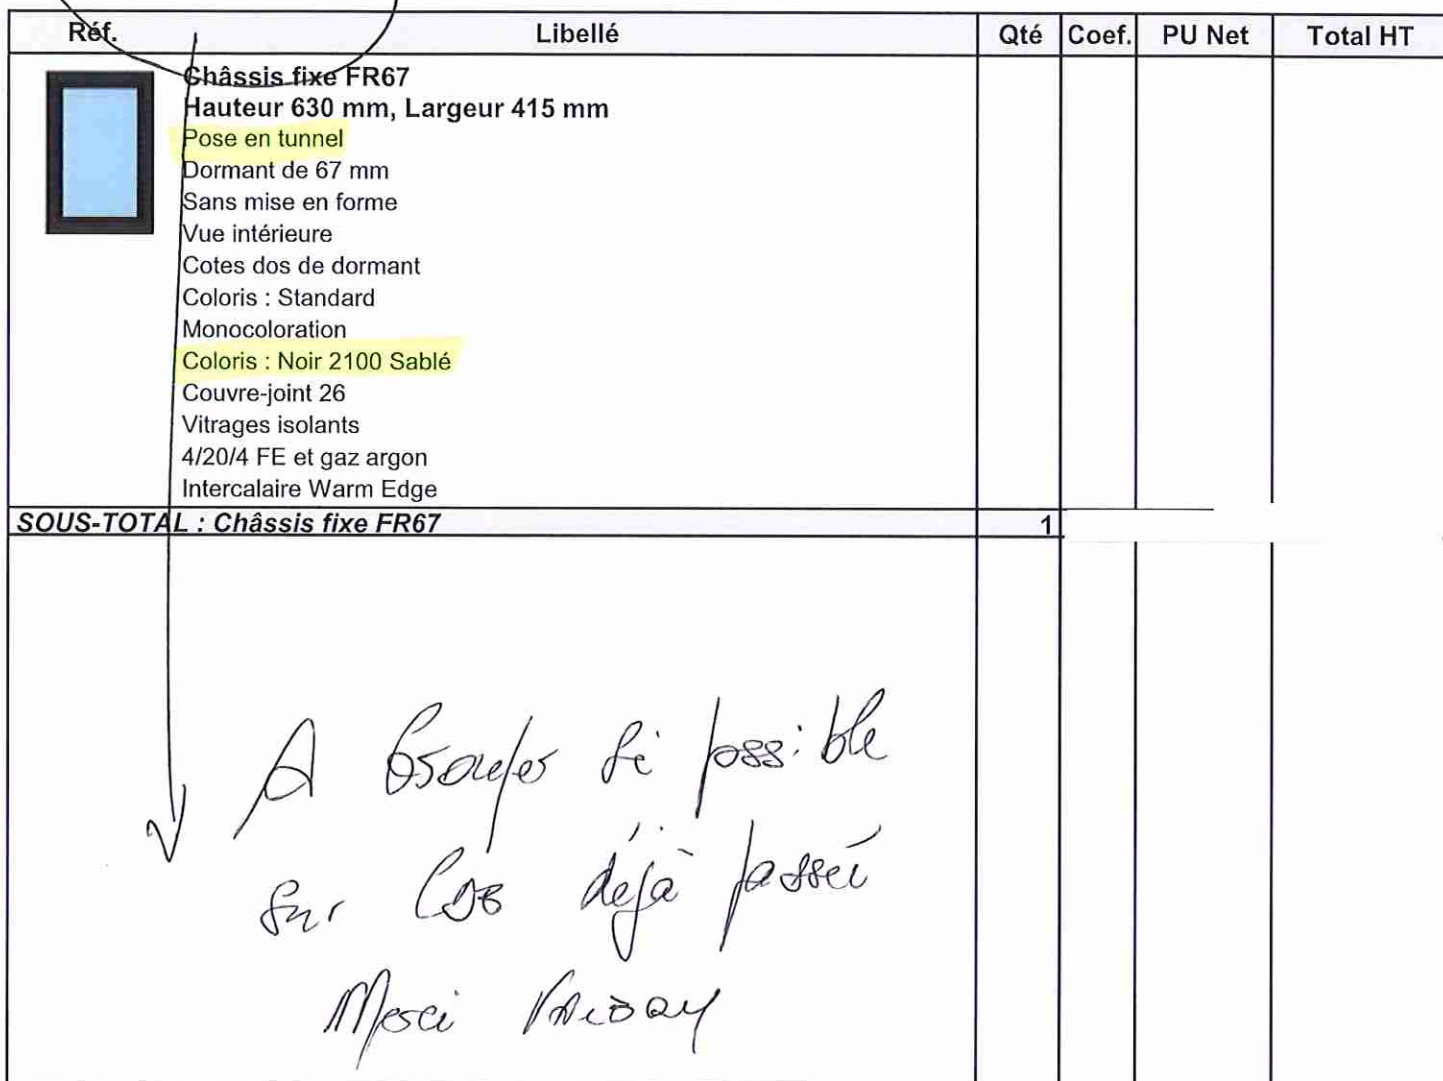 Réf. Libellé Qté Coef. PU Net Total HT
Châssis fixe FR67
Hauteur 630 mm, Largeur 415 mm
Pose en tunnel
Dormant de 67 mm
Sans mise en forme
Vue intérieure
Cotes dos de dormant
Coloris : Standard
Monocoloration
Coloris : Noir 2100 Sablé
Couvre-joint 26
Vitrages isolants
4/20/4 FE et gaz argon
Intercalaire Warm Edge
SOUS-TOTAL : Châssis fixe FR67 1
A Grouper si possible
sur déjà passé
Merci